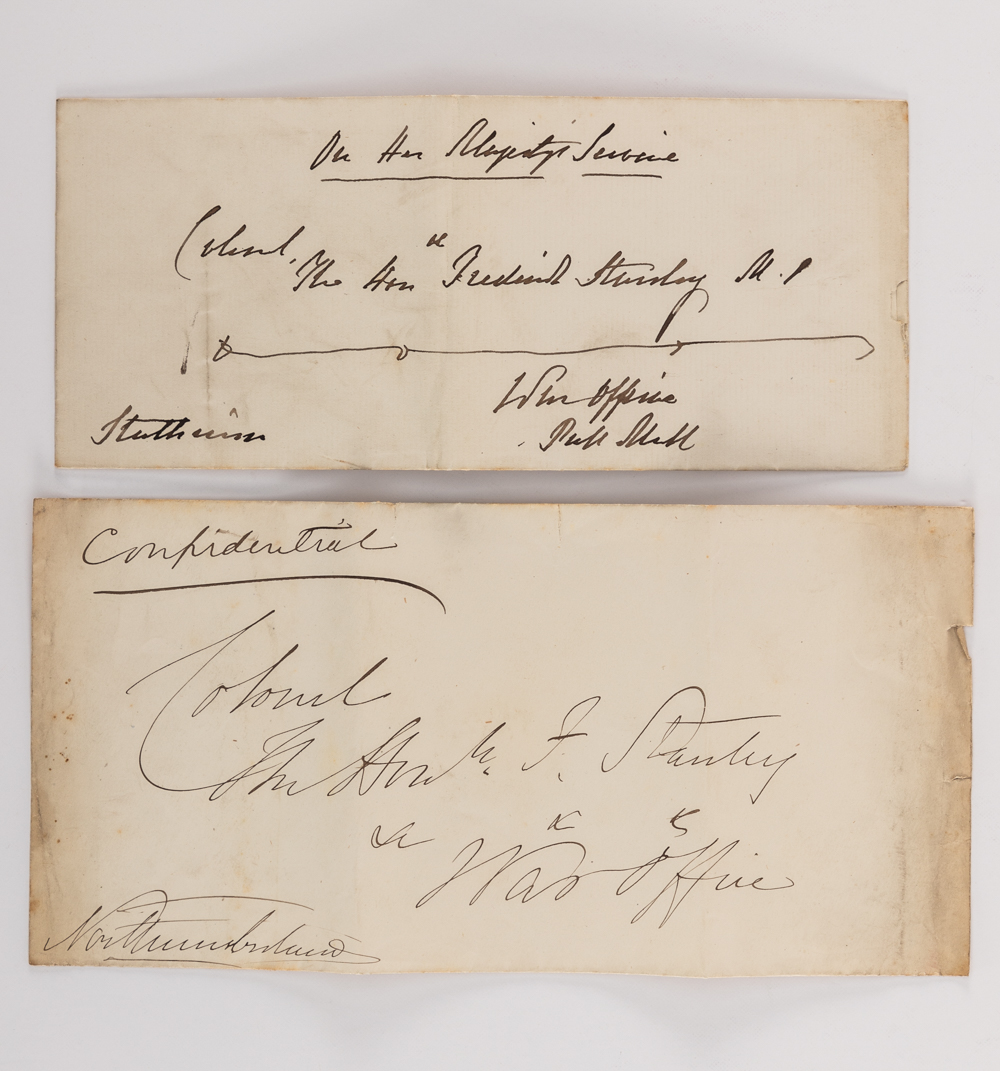 On Her Majesty's Service
Colonel,
The Honble Frederick Stanley M.P
War Office
Pall Mall
Strathnairn
Confidential
Colonel
The Honble. F. Stanley
&c &c &c
War Office
Northumberland